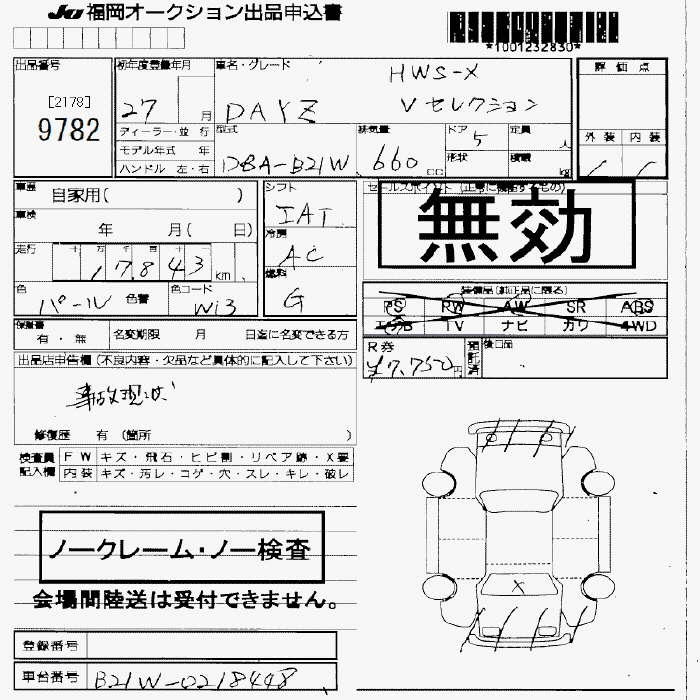 JU 福岡オークション出品申込書
*1001232830*
出品番号
[2178]
9782
初年度登録年月
27 月
車名・グレード
HWS-X
DAYZ Vセレクション
評価点
外装 内装
ディーラー・並行
モデル年式 年
ハンドル 左・右
型式
DBA-B21W
排気量
660 cc
ドア 5
形状
定員 人
積載 kg
車歴
自家用( )
車検
年 月( 日)
走行
十 万 千 百 十
1 7 8 4 3 km
色
パール
色替
色コード
Wi3
シフト
IAT
冷房
AC
燃料
G
セールスポイント (正常に機能するもの)
無効
装備品(純正品に限る)
PS PW AW SR ABS
エアB TV ナビ カワ 4WD
保証書
有・無
名変期限 月 日迄に名変できる方
R券
¥7,750円
預託済
後日品
出品店申告欄 (不良内容・欠品など具体的に記入して下さい)
事故現状
修復歴 有 (箇所 )
検査員記入欄
FW キズ・飛石・ヒビ割・リペア跡・X要
内装 キズ・汚レ・コゲ・穴・スレ・キレ・破レ
ノークレーム・ノー検査
会場間陸送は受付できません。
登録番号
車台番号 B21W-0218448